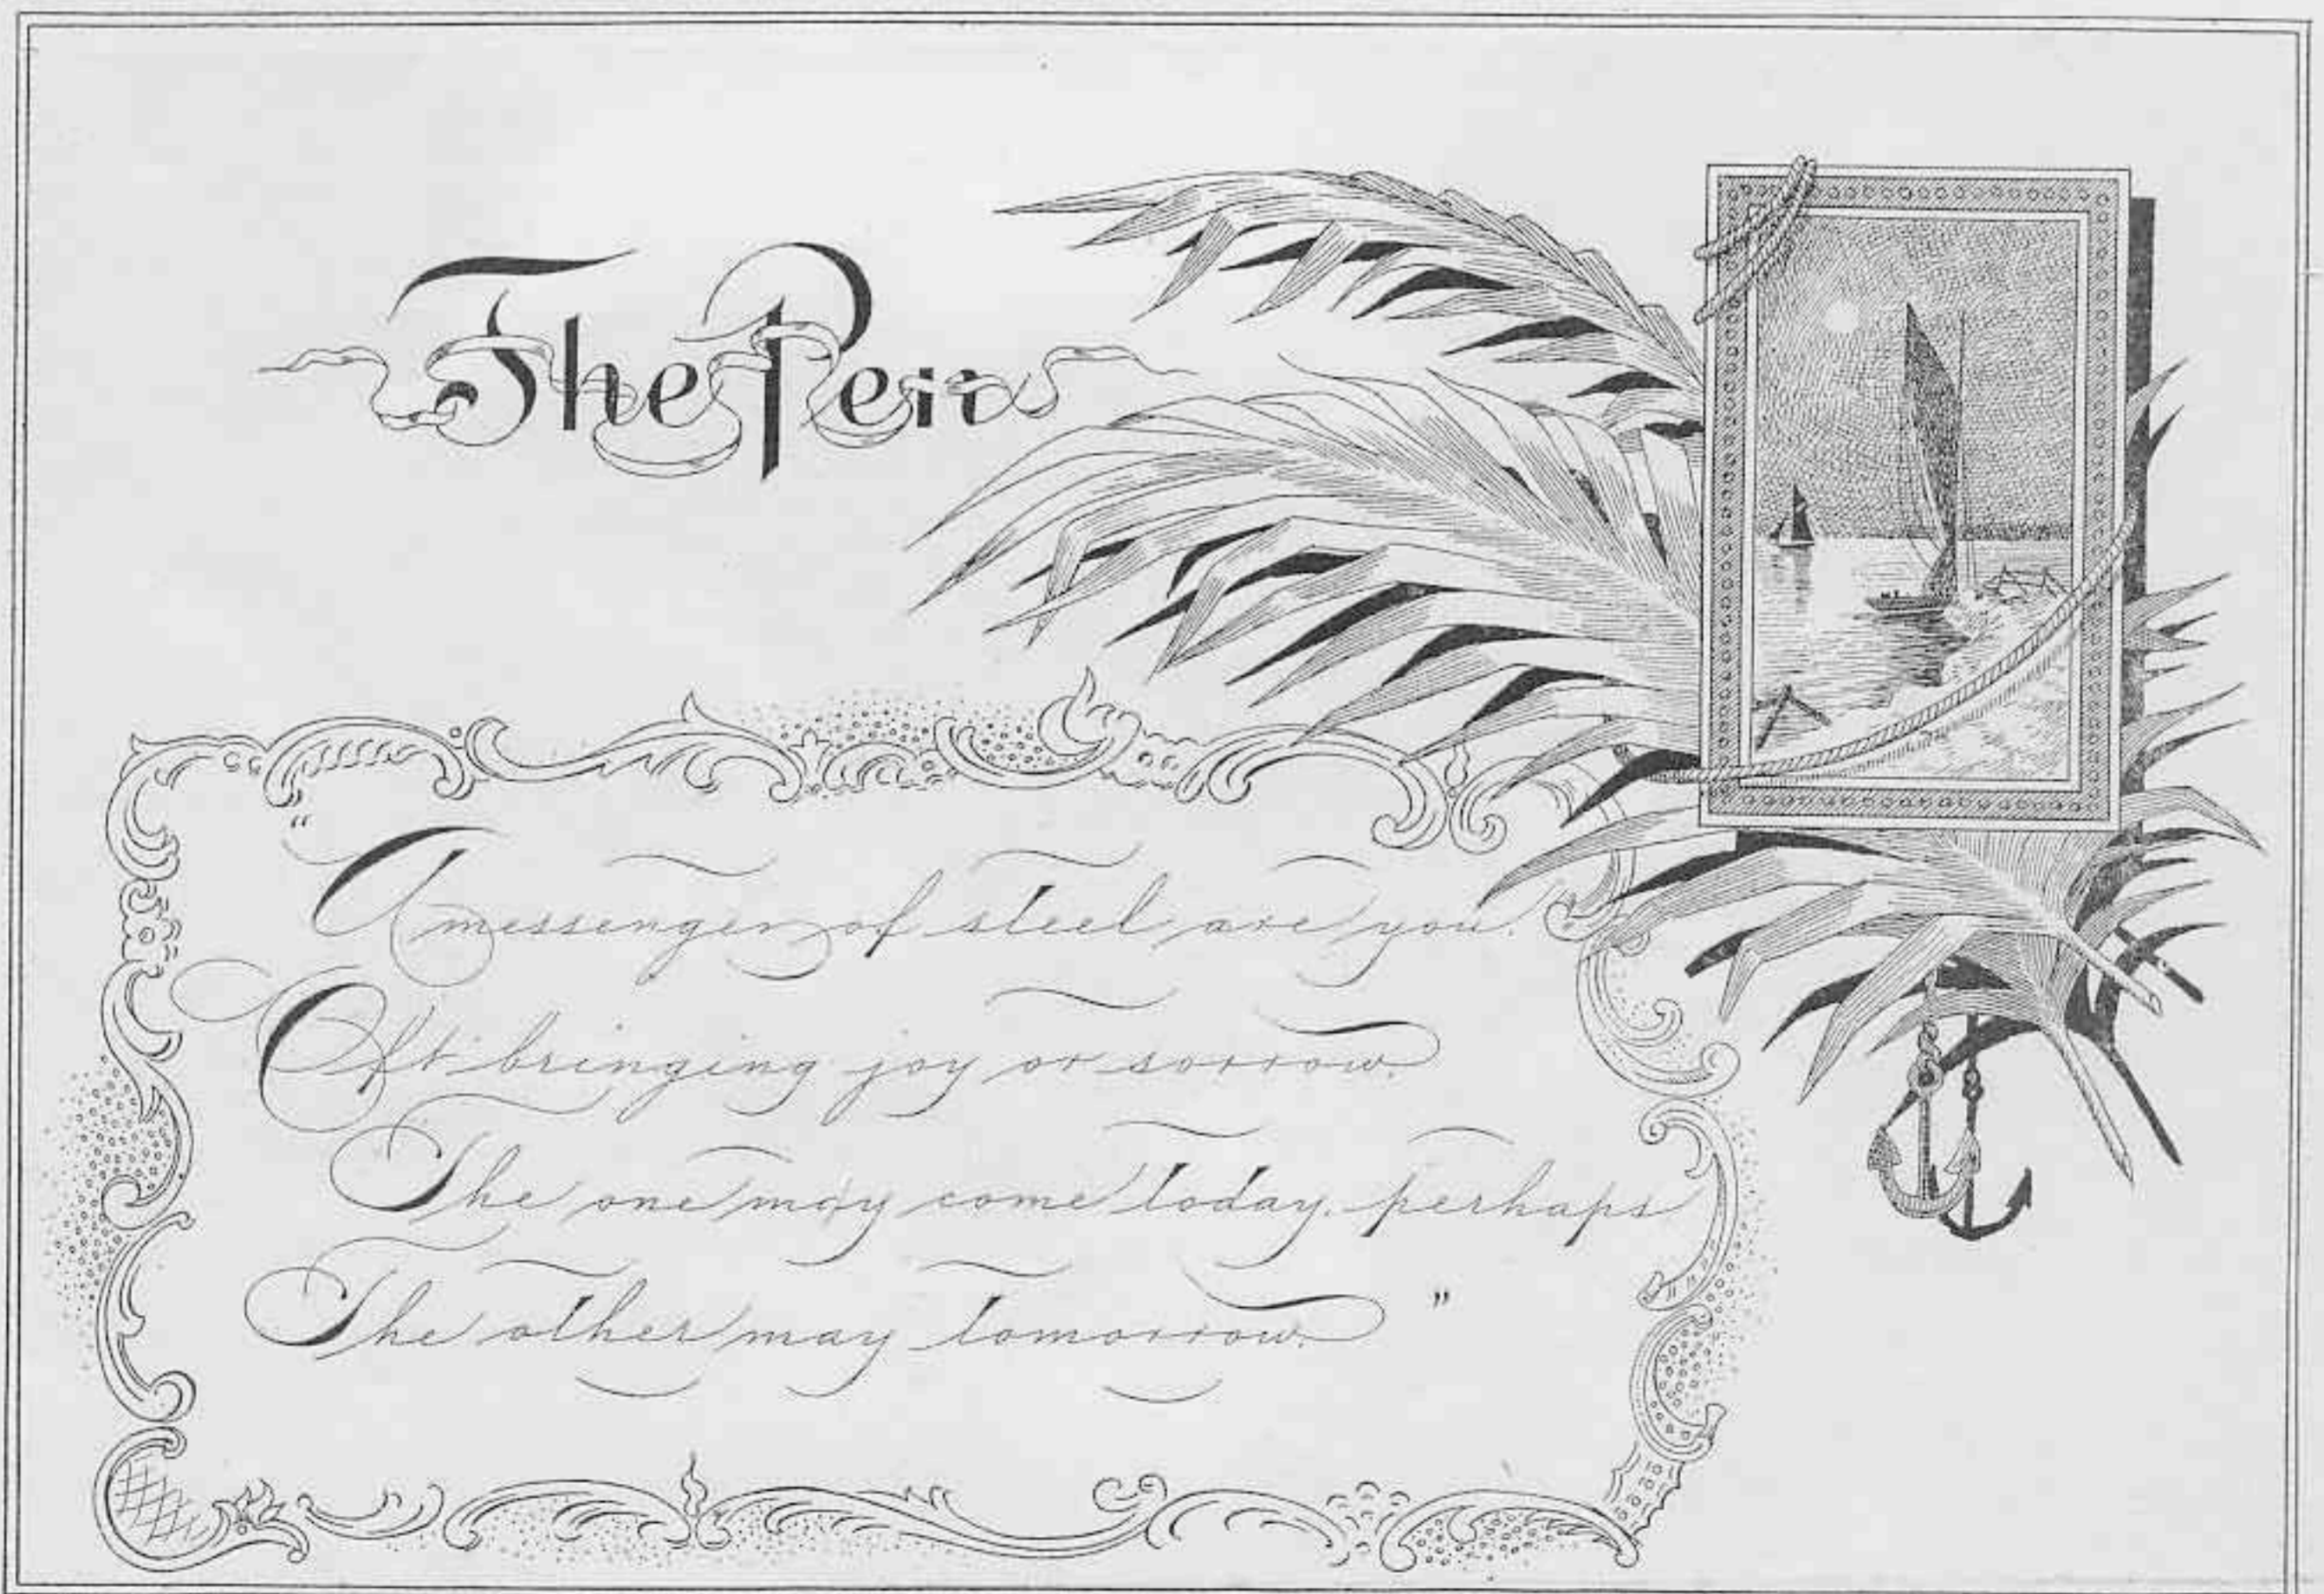 The Pen
“A messenger of steel are you.
Oft bringing joy or sorrow.
The one may come today, perhaps
The other may tomorrow.”